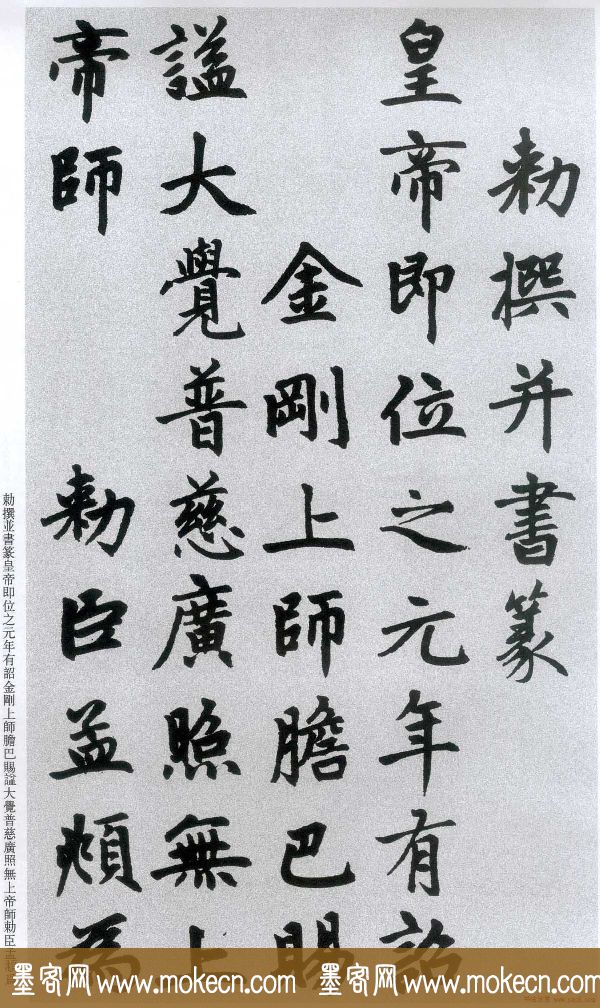 勅撰并書篆
皇帝即位之元年有詔
金剛上師膽巴賜
謚大覺普慈廣照無上
帝師 勅臣孟頫為
勅撰並書篆皇帝即位之元年有詔金剛上師膽巴賜謚大覺普慈廣照無上帝師勅臣孟頫爲
墨客网 www.mokecn.com 墨客网 www.mokecn.com